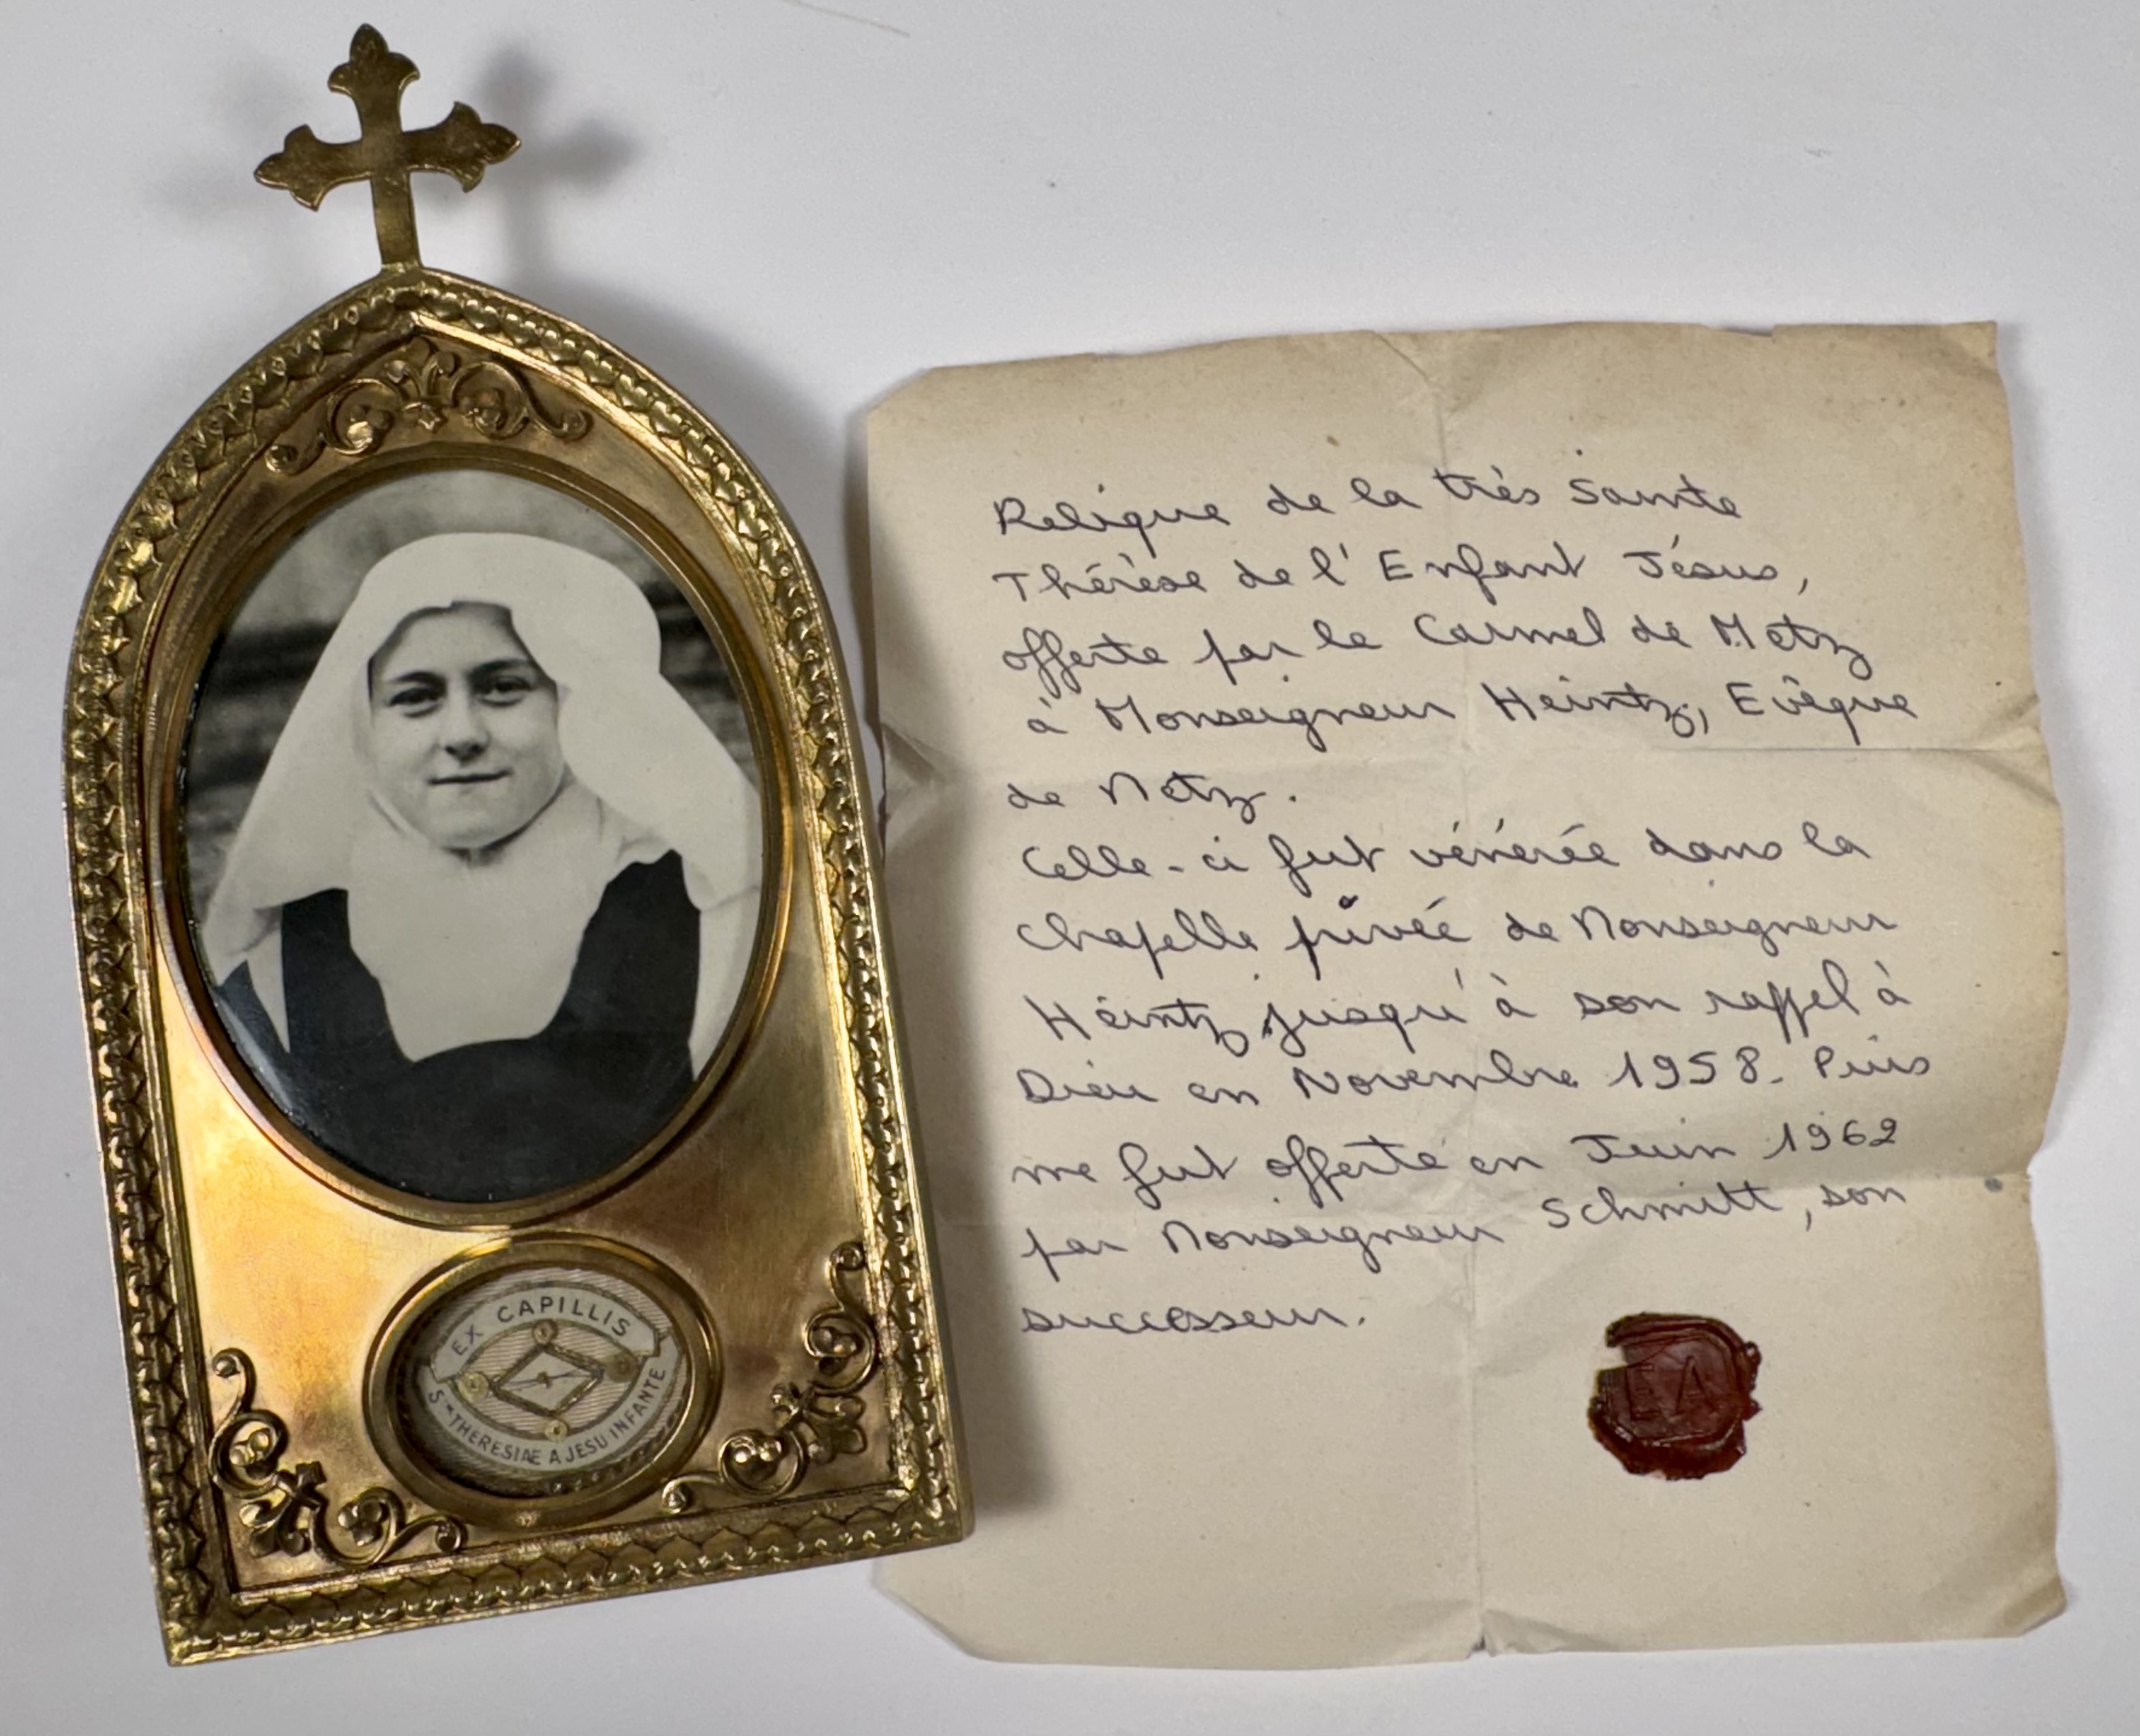 EX CAPILLIS
Sᵃᵉ THERESIAE A JESU INFANTE
Relique de la très Sainte
Thérèse de l'Enfant Jésus,
offerte par le Carmel de Metz
à Monseigneur Heintz, Evêque
de Metz.
Celle-ci fut vénérée dans la
chapelle privée de Monseigneur
Heintz jusqu'à son rappel à
Dieu en Novembre 1958. Puis
me fut offerte en Juin 1962
par Monseigneur Schmitt, son
successeur.
EA